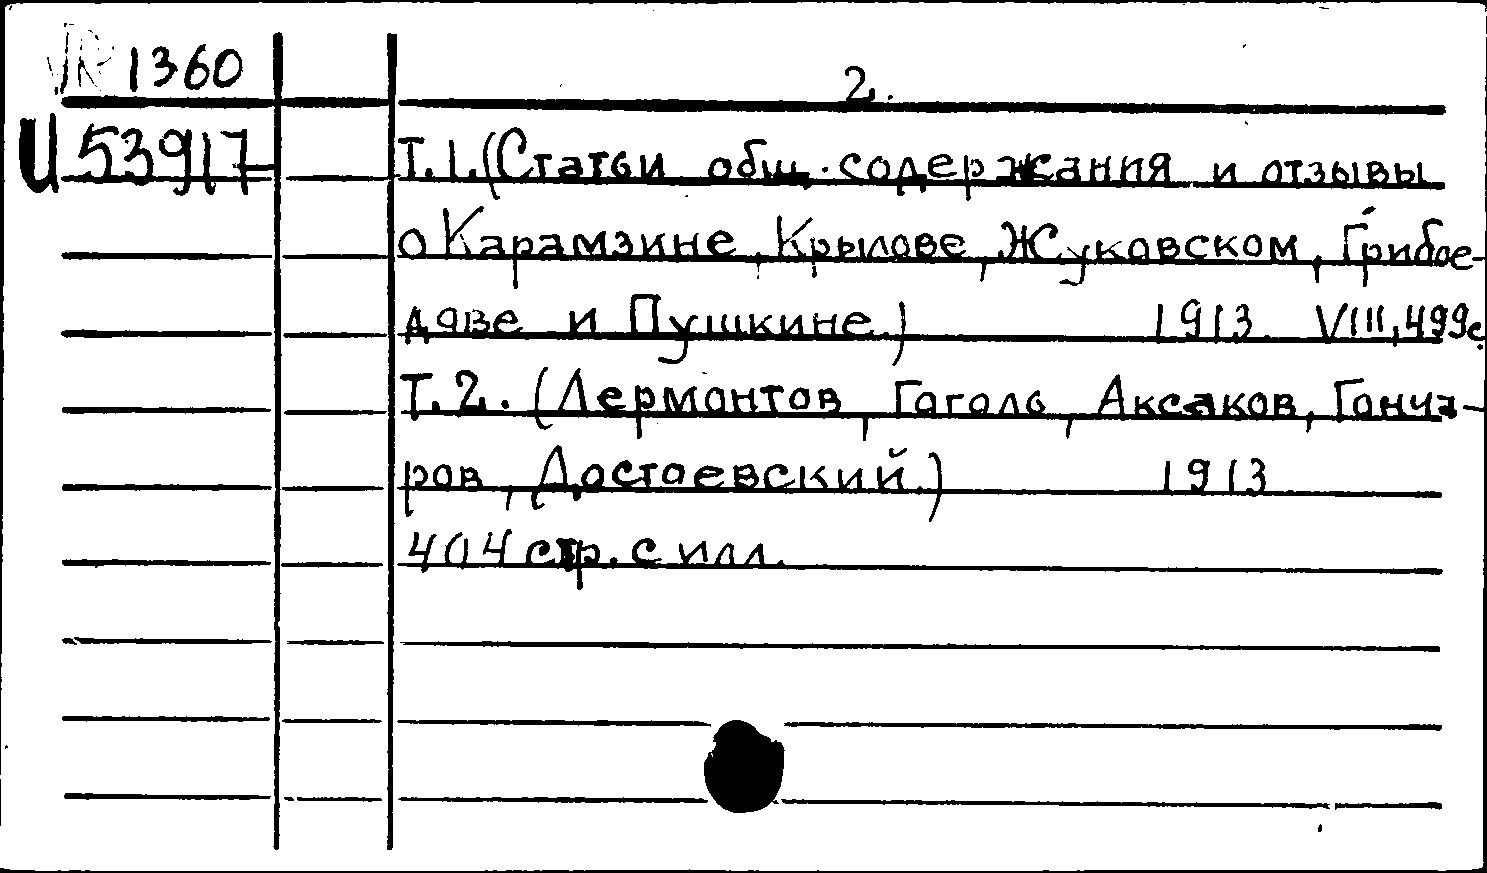 1360
2.
И 53917
Т.1.(Статьи общ. содержания и отзывы
о Карамзине, Крылове, Жуковском, Грибое-
дове и Пушкине.) 1913 VIII, 499с.
Т.2. (Лермонтов, Гоголь, Аксаков, Гонча-
ров, Достоевский.) 1913
404 стр. с илл.